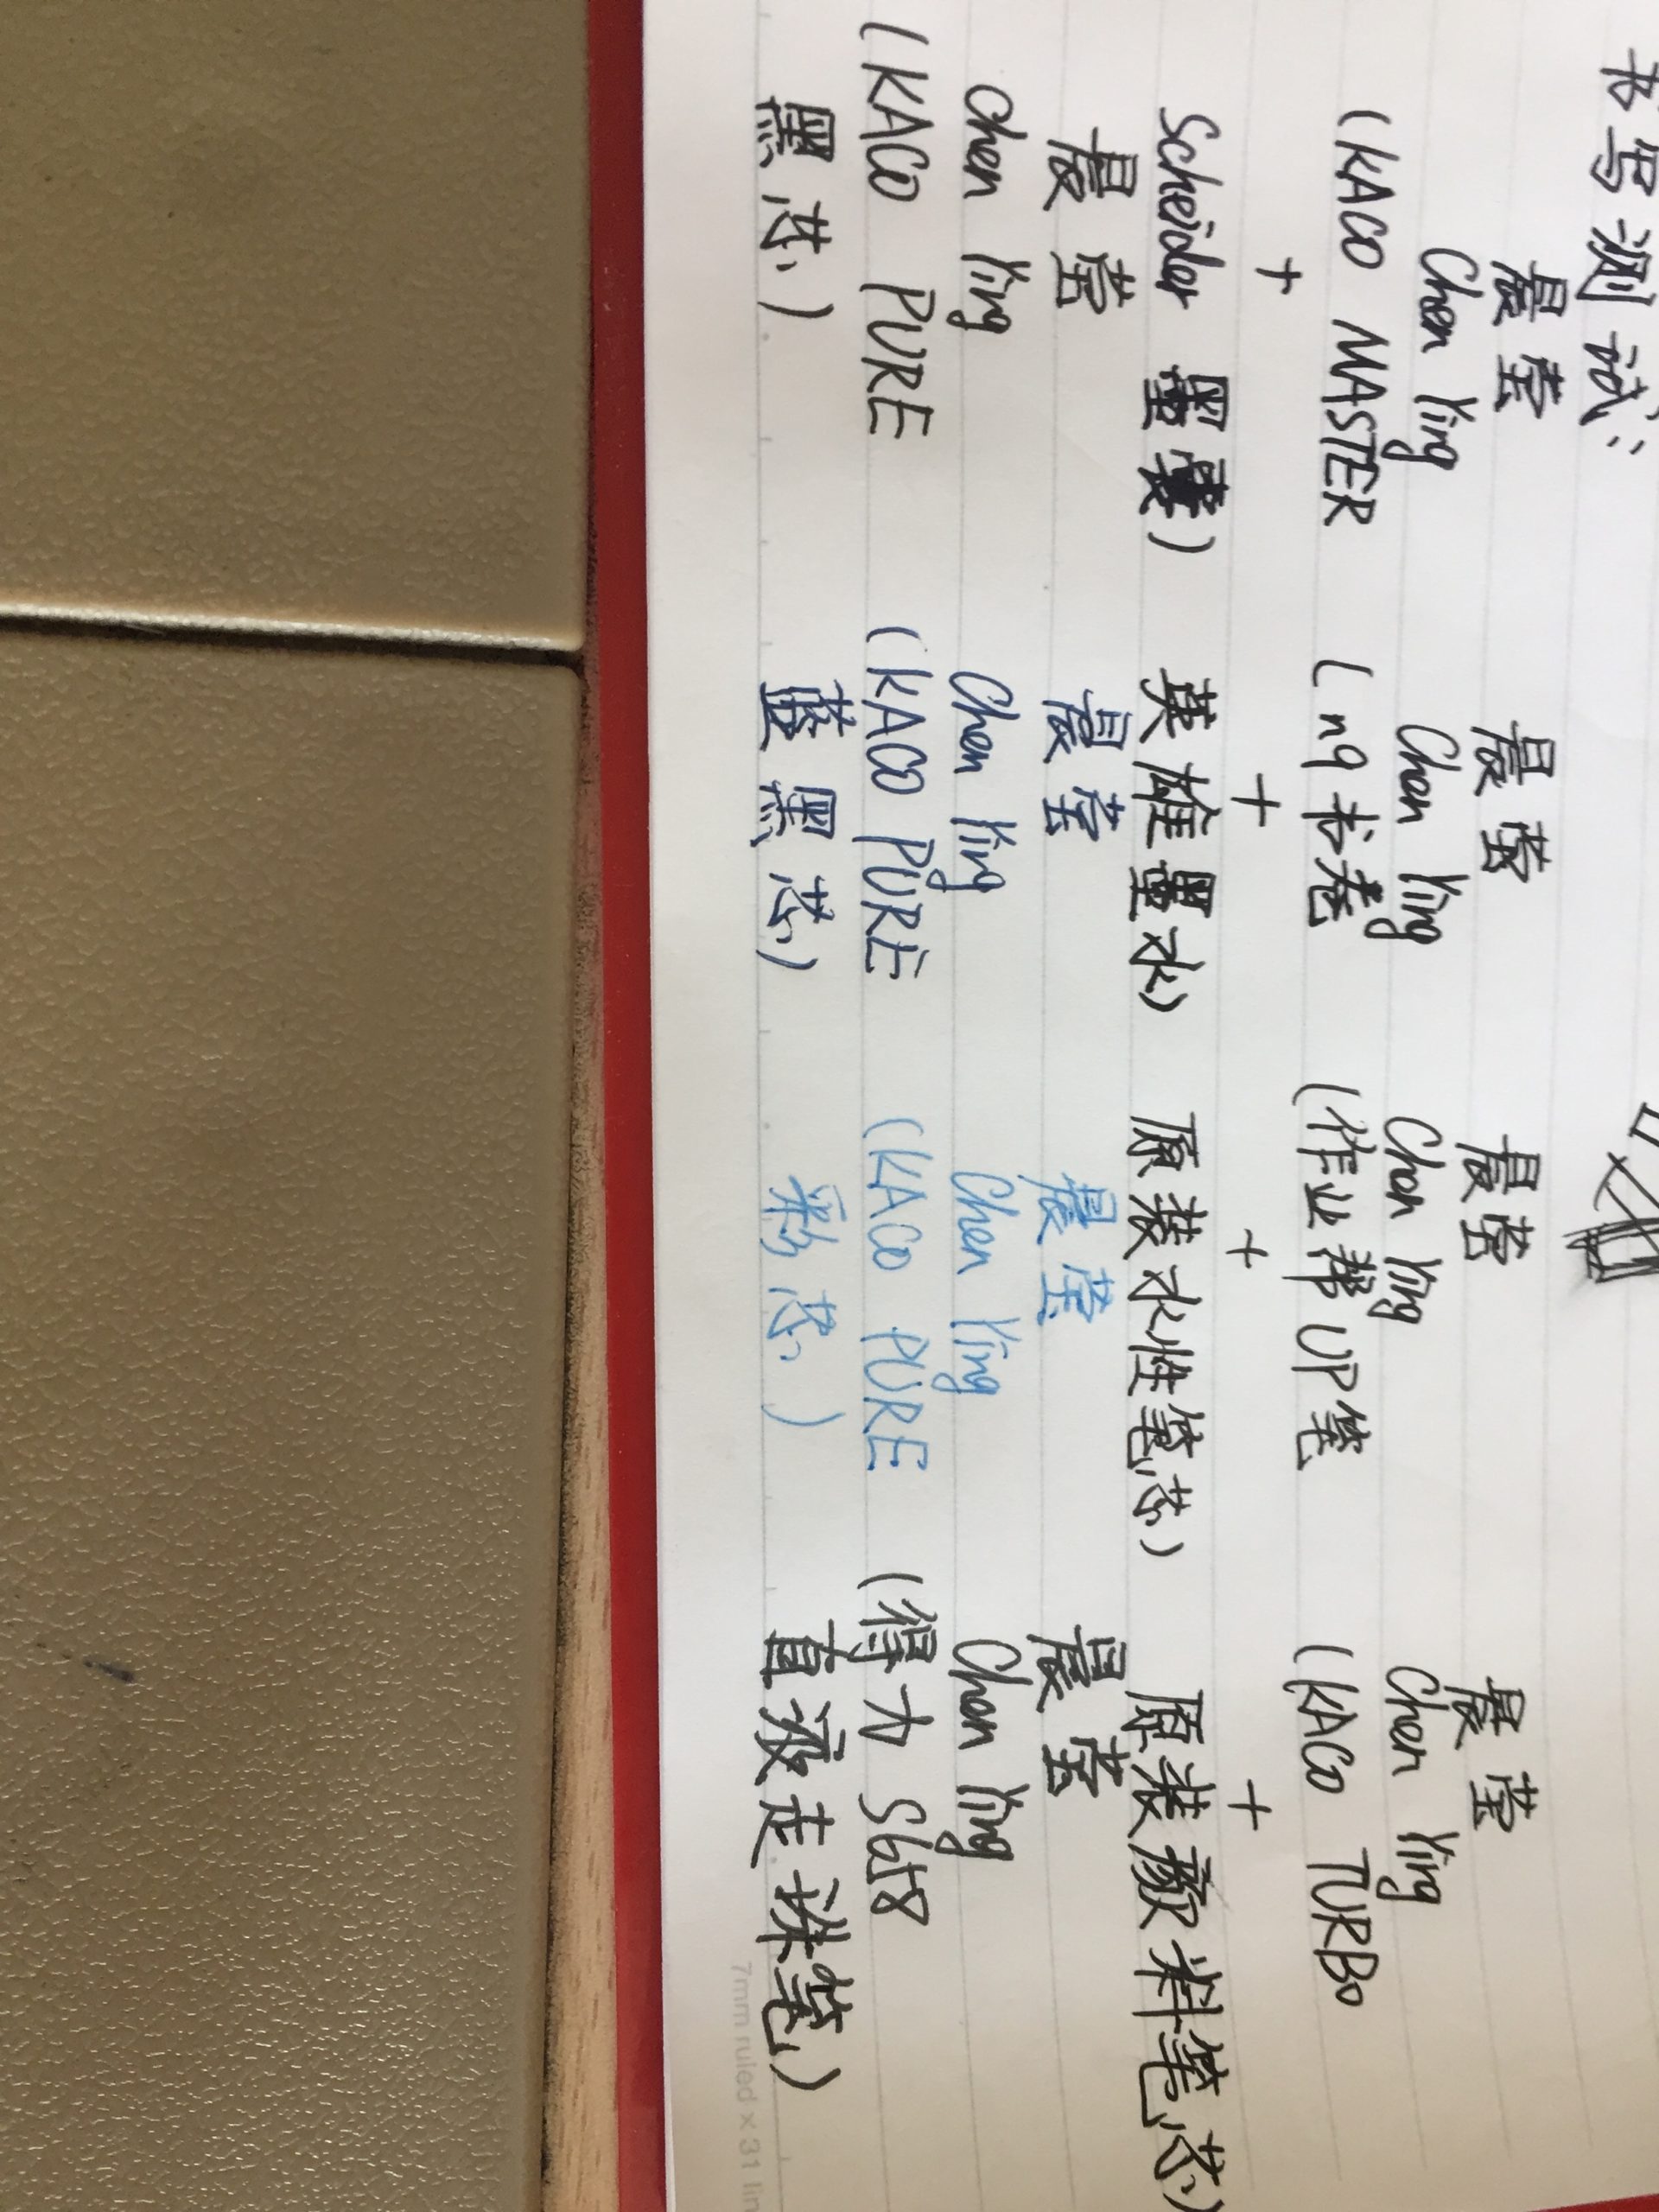 书写测试:
晨莹 晨莹 晨莹 晨莹
Chen Ying Chen Ying Chen Ying Chen Ying
(KACO MASTER (n9书卷 (作业帮UP笔 (KACO TURBO
+ + + +
Scheider 墨囊) 英雄墨水) 原装水性笔芯) 原装颜料笔芯)
晨莹 晨莹 晨莹 晨莹
Chen Ying Chen Ying Chen Ying Chen Ying
(KACO PURE (KACO PURE (KACO PURE (得力 S658
黑芯) 蓝黑芯) 彩芯) 直液走珠笔)
7mm ruled x 31 lin